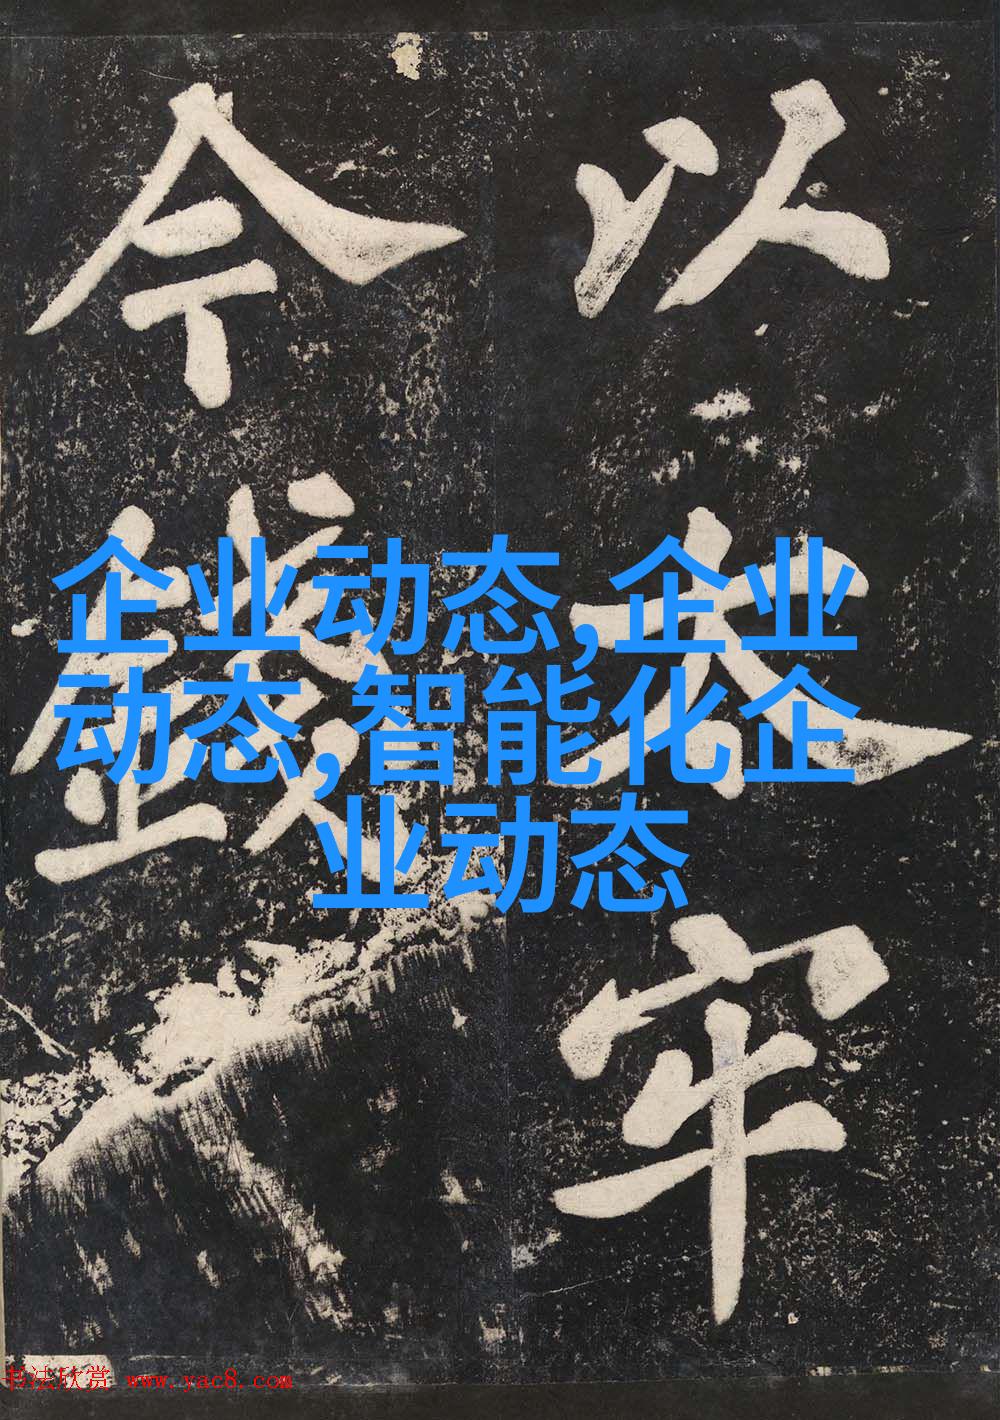 以太牢
今
企业动态,企业
动态,智能化企
业动态
书法欣赏 www.yac8.com